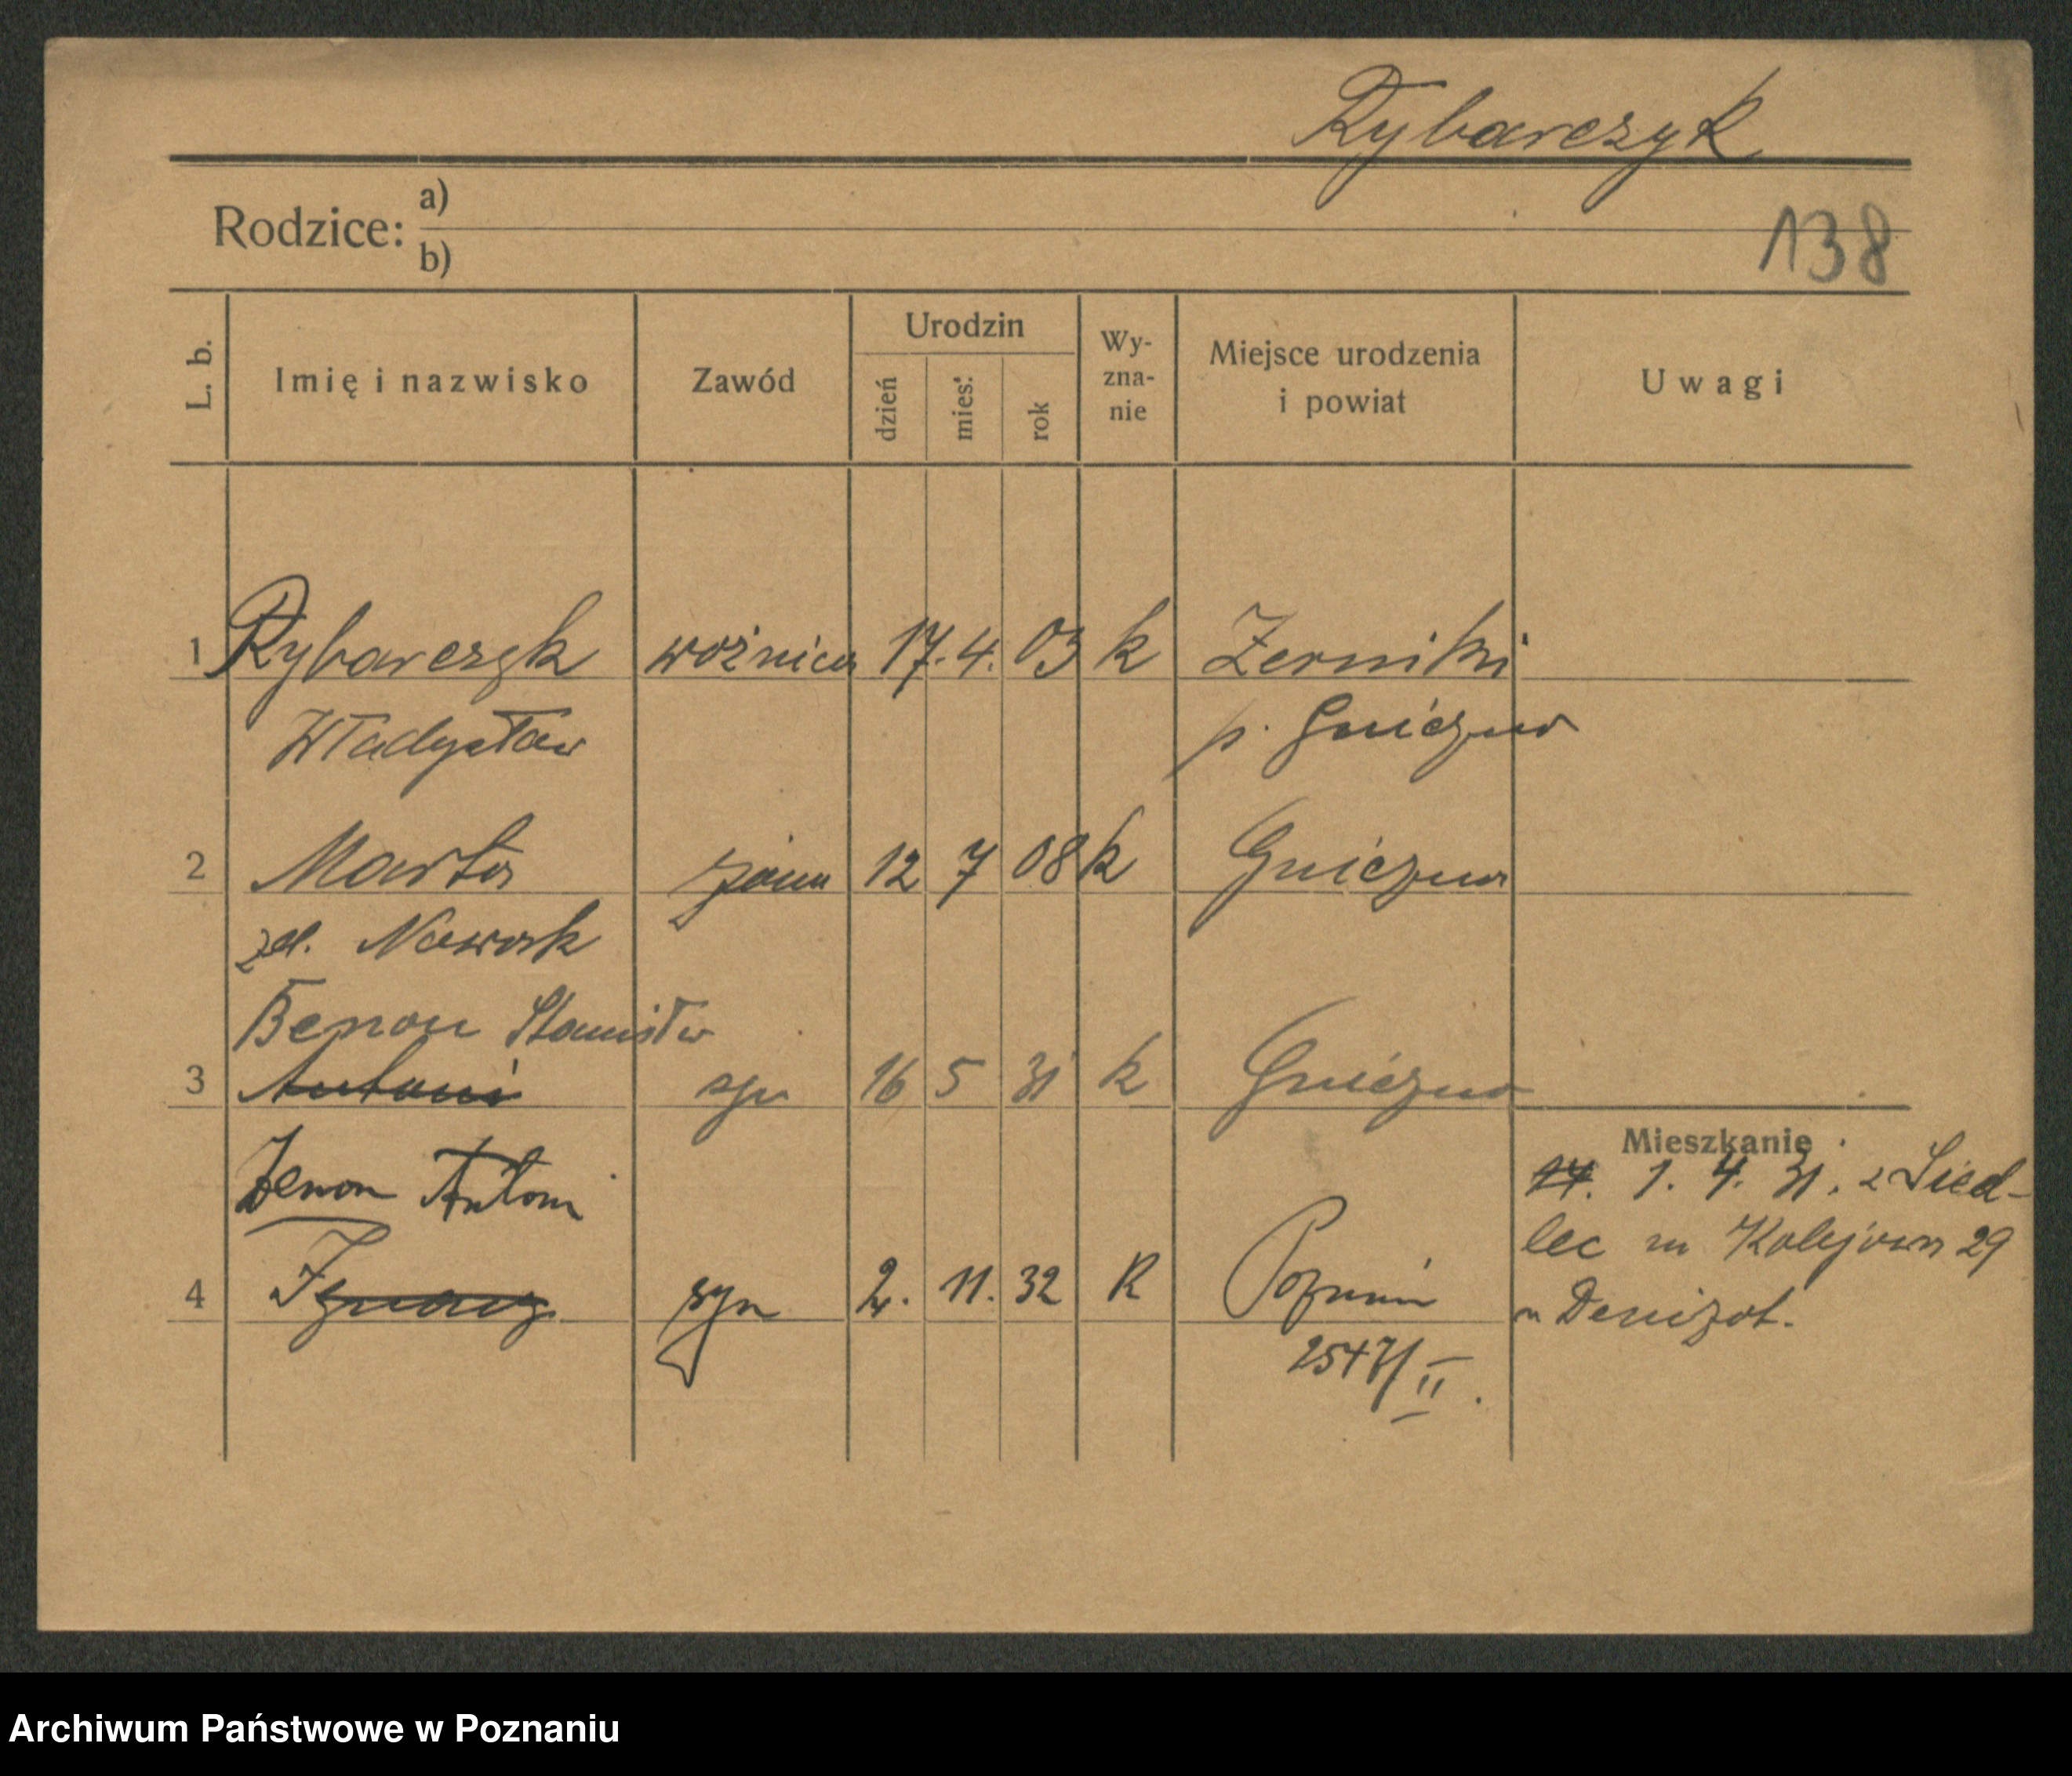 Rybarczyk
Rodzice: a)
b)
138
L. b. Imię i nazwisko Zawód Urodzin dzień mies. rok Wy-zna-nie Miejsce urodzenia i powiat Uwagi
1 Rybarczyk woźnica 17. 4. 03 k Żerniki
Władysław p. Gniezno
2 Marta żona 12 7 08 k Gniezno
zd. Nowak
Benon Stanisłw
3 Antoni syn 16 5 31 k Gniezno
Mieszkanie
Zenon Antoni
14. 1. 4. 31. z Sied-
lec Kolejowa 29
4 Ignacy syn 2. 11. 32 k Poznań
Denizot.
2547/II.
Archiwum Państwowe w Poznaniu